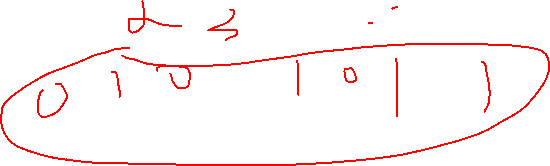 2 3
0 1 0 1 0 1 1